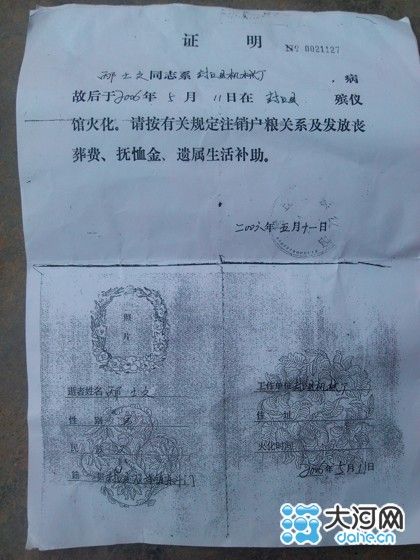 证 明
№ 0021127
同志系 封丘县机械厂 ，病
故后于2006年 5 月 11日在 封丘县 殡仪
馆火化。请按有关规定注销户粮关系及发放丧
葬费、抚恤金、遗属生活补助。
二〇〇六年五月十一日
照
片
逝者姓名
性 别
民 族
籍 贯
工作单位 机械厂
住 址
火化时间
2006年5月11日
大河网
dahe.cn